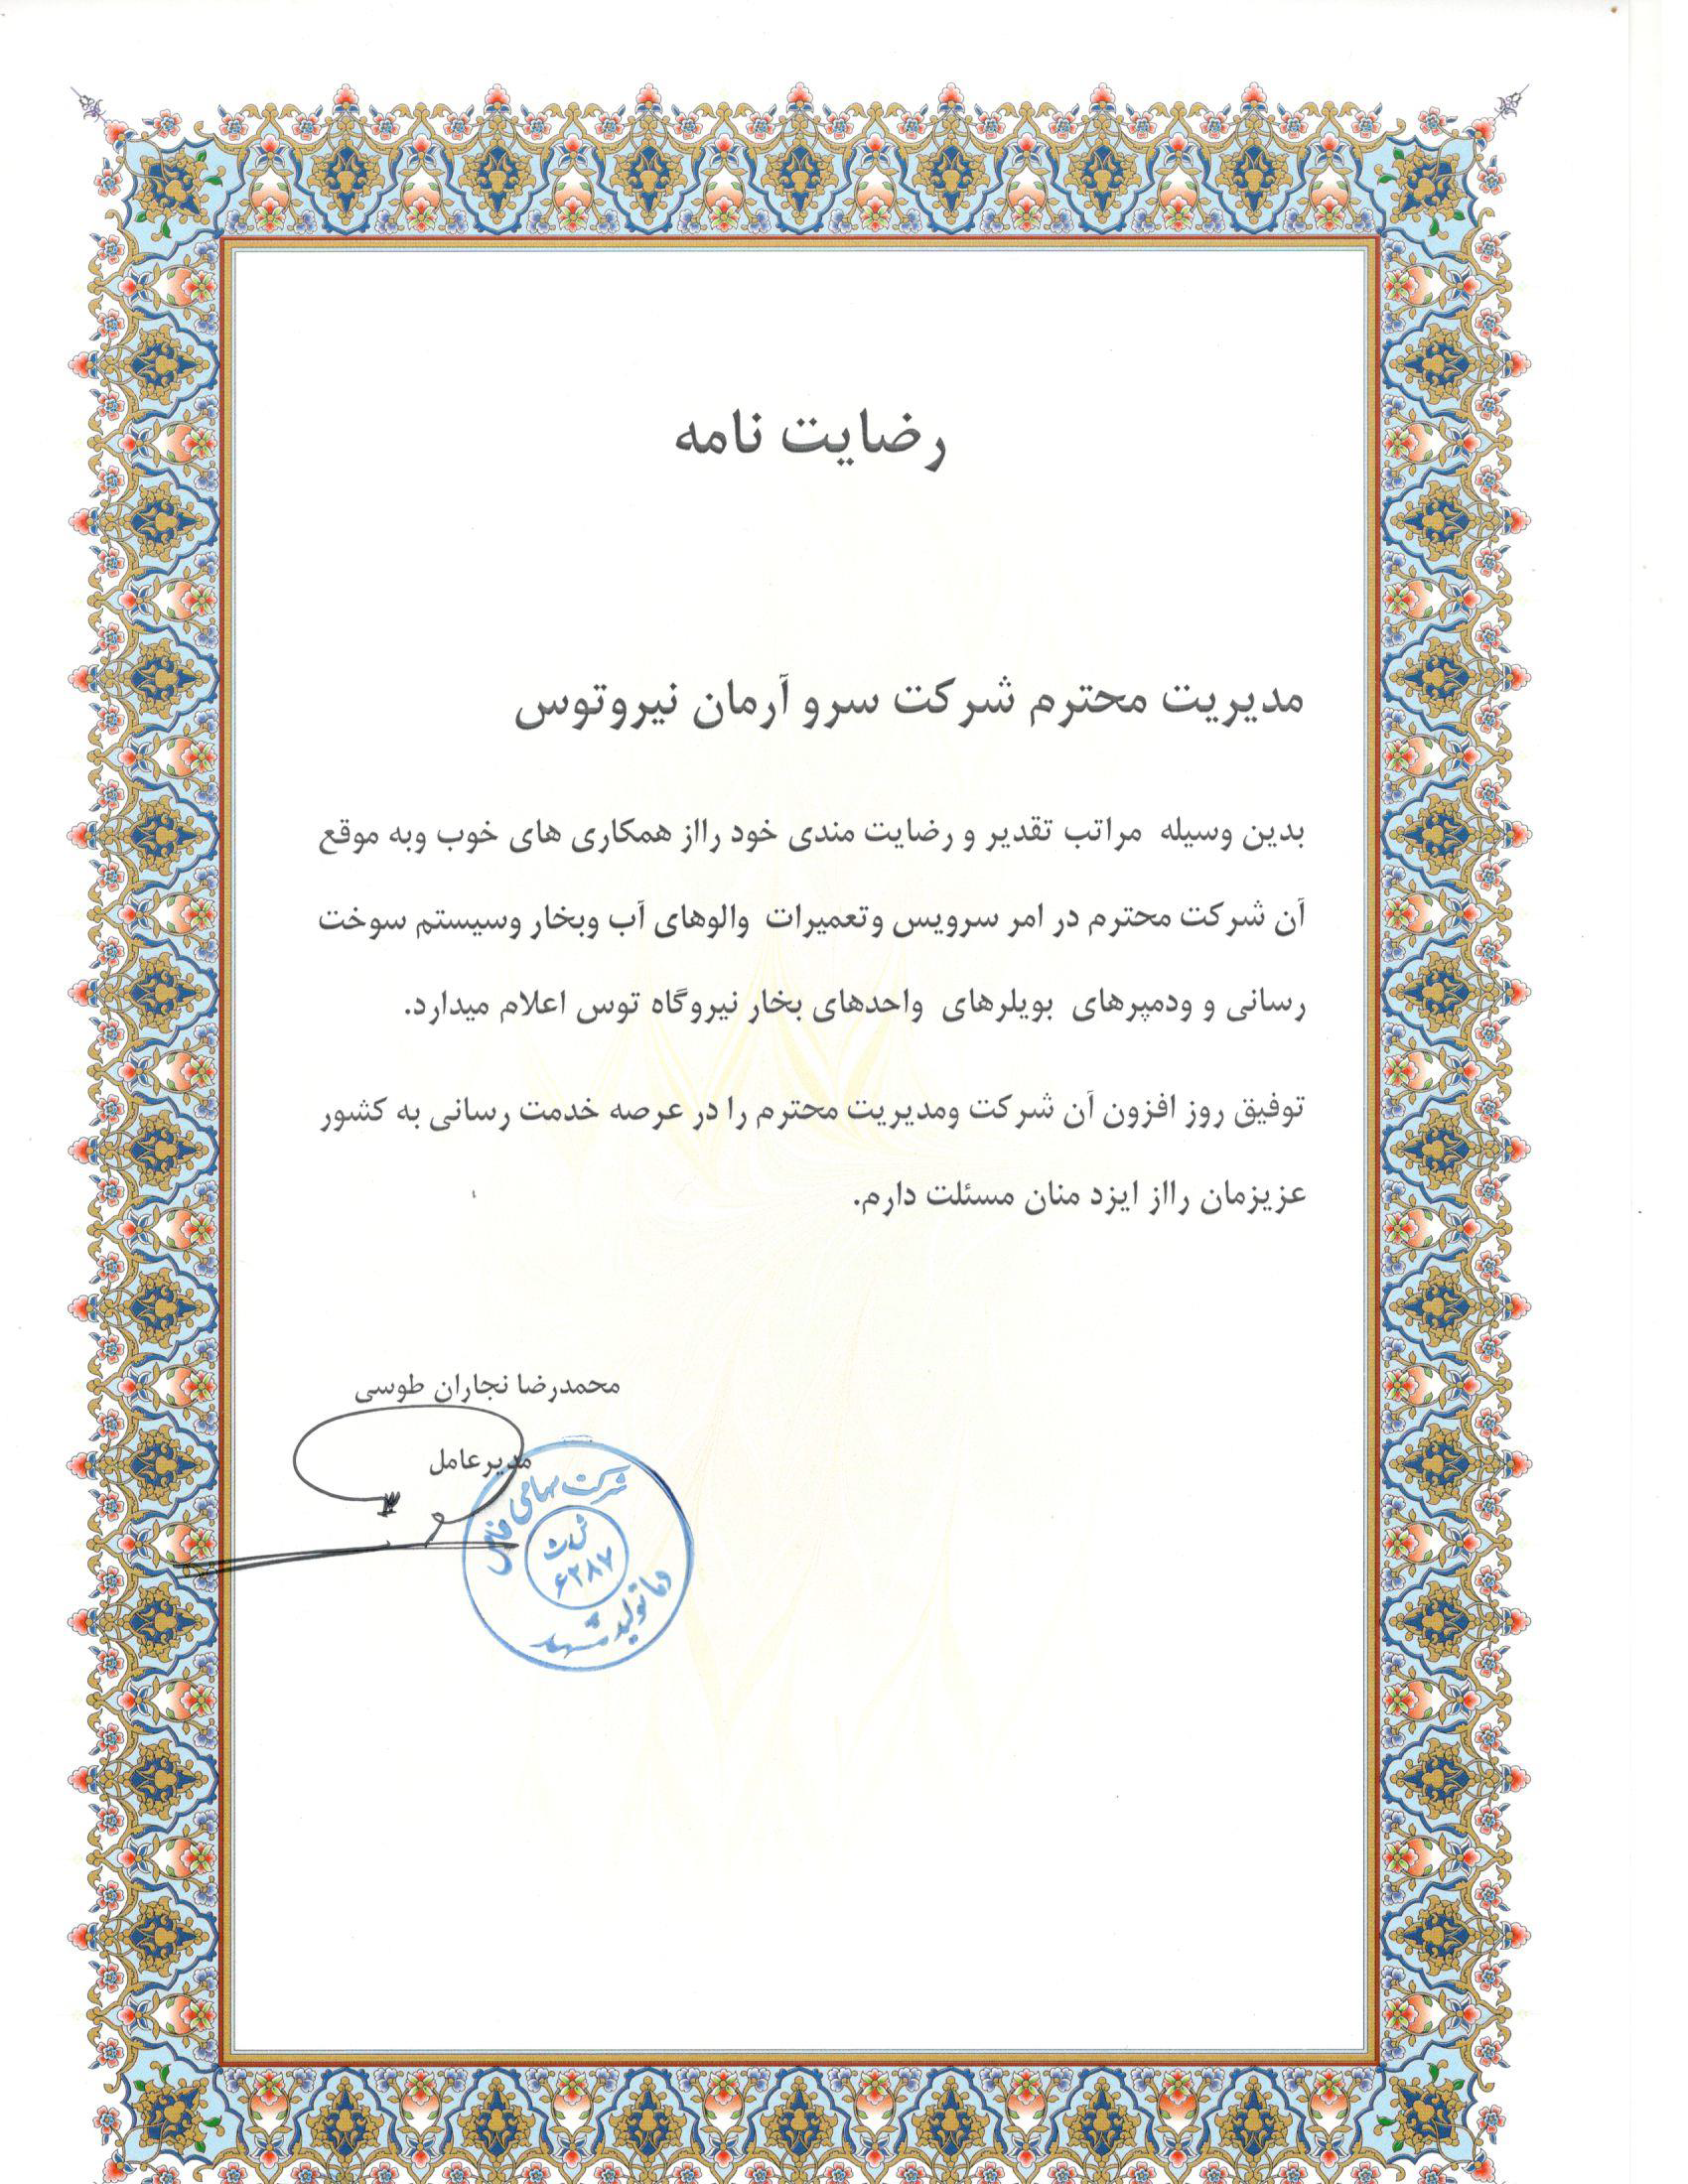 رضایت نامه
مدیریت محترم شرکت سرو آرمان نیروتوس
بدین وسیله مراتب تقدیر و رضایت مندی خود رااز همکاری های خوب وبه موقع
آن شرکت محترم در امر سرویس وتعمیرات والوهای آب وبخار وسیستم سوخت
رسانی و ودمپرهای بویلرهای واحدهای بخار نیروگاه توس اعلام میدارد.
توفیق روز افزون آن شرکت ومدیریت محترم را در عرصه خدمت رسانی به کشور
عزیزمان رااز ایزد منان مسئلت دارم.
محمدرضا نجاران طوسی
مدیرعامل
شرکت سهامی خاص
ش ث
۶۲۸۷
دما تولید مشهد